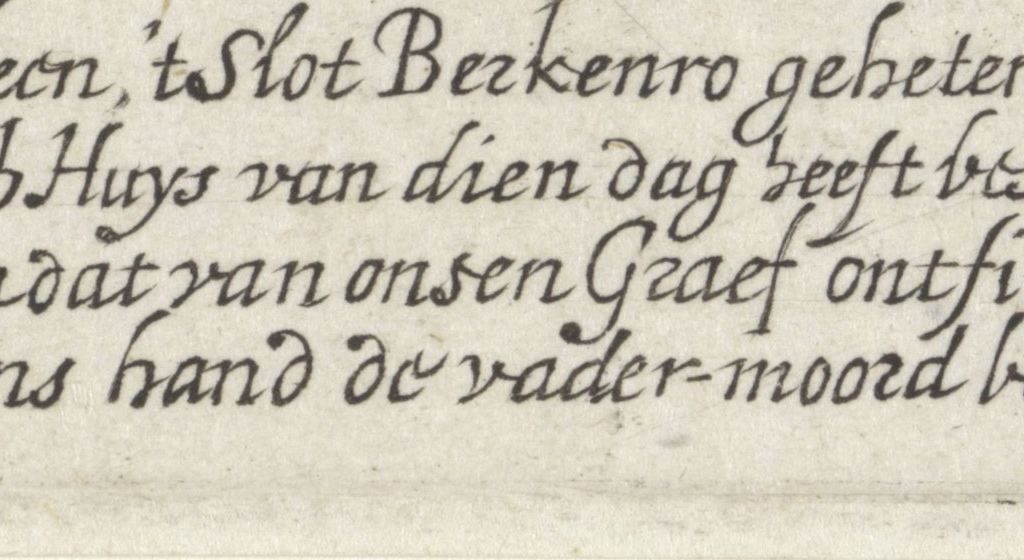 een, 't Slot Berkenro geheten
Huys van dien dag heeft
dat van onsen Graef ontfi
ns hand de vader-moord